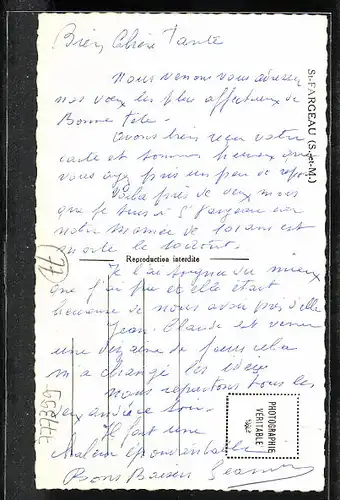 Bien Chère Tante
Nous venons vous adresser
nos voeux les plus affectueux de
Bonne Fête.
Avons bien reçu votre
carte et sommes heureux que
vous ayez pris un peu de repos
près de deux mois
que je suis à St Fargeau car
notre maman de ans est
morte le
Reproduction interdite
Je l'ai soignée du mieux
que j'ai pu et elle était
heureuse de nous avoir près d'elle
Jean-Claude est venu
une dizaine de jours cela
m'a changé les idées
nous repartons tous les
deux
Il fait une
chaleur épouvantable
Bons Baisers
St-FARGEAU (S.-et-M.)
PHOTOGRAPHIE
VÉRITABLE
77
77359